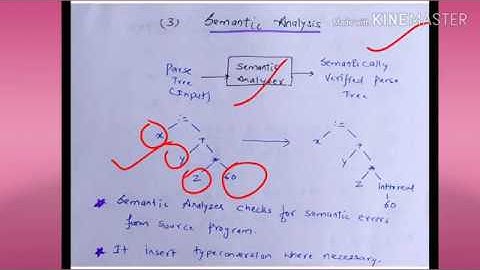 (3) Semantic Analysis
made with KINEMASTER
Parse Tree (Input)
Semantic Analyzer
Semantically Verified Parse Tree
:=
x
+
y
*
z
60
:=
x
+
y
*
z
inttoreal
60
* Semantic Analyzer checks for semantic errors
from source program.
* It insert typeconversion where necessary.